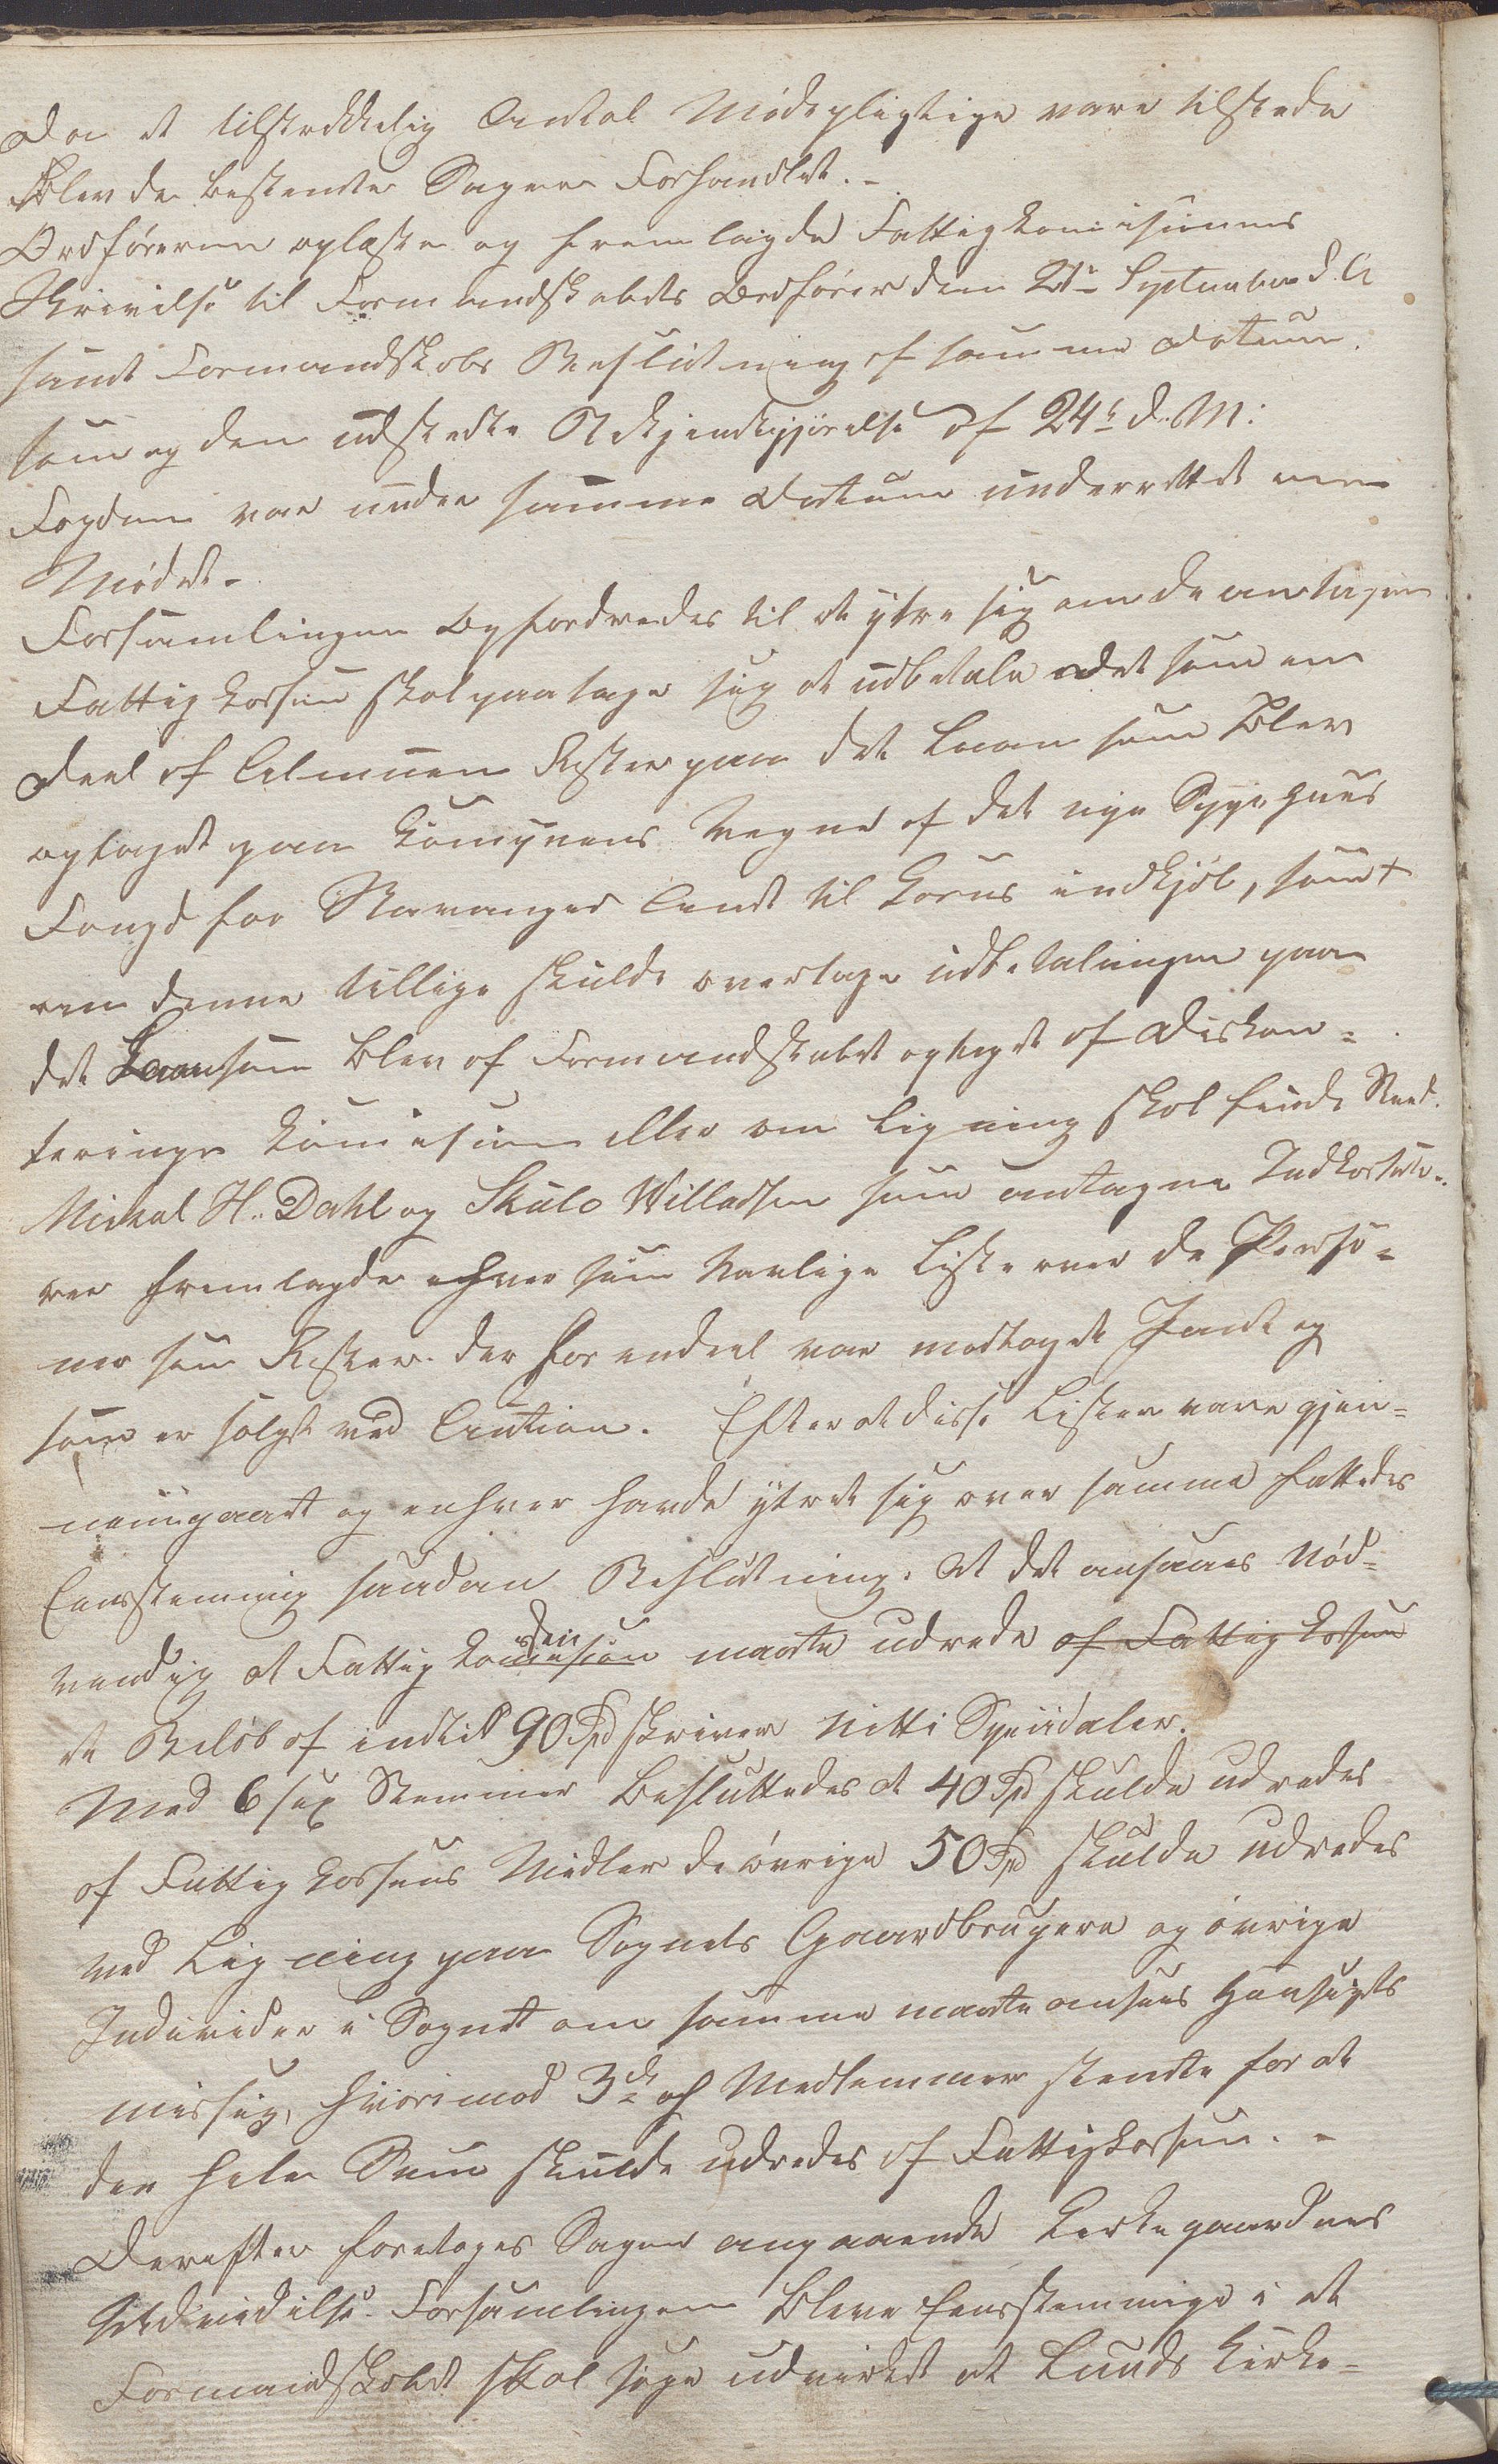 Da et tilstrekkelig Antal Mødepligtige vare tilstede
Blev de bestemte Sager Forhandlet.-
Ordføreren oplæste og fremlagde Fattigkomisionens
Skrivelse til Formandskabets Ordfører dem 21de September d. A
samt Formandskabs Beslutning af samme Datum.
som og den udstedte Bekjendtgjørelse af 24de d. M:
Fogden var under samme Datum underrettet om
Mødet.
Forsamlingen Opfordredes til at ytre sig om de antagen
Fattigkassen skal paatage sig at udbetale Det som en
Deel af Almuen Rester paa det Laan som Blev
optaget paa Komunens Vegne af det nye Sygehuus
Fongd for Stavanger Amt til Korns indkjøb, samt
om denne tillige skulde overtage udbetalingen paa
det Laan som Blev af Formandskabet optaget af Diskon=
terings Komision eller om Ligning skal finde Sted.
Mickal H. Dahl og Skule Willadsen som antagne Indkasse-
rer fremlagde enhver sin Navlige Liste over de Perso=
ner som Rester. der for endeel var modtaget Pant og
som er solgt ved Auction. Efter at disse Lister vare gjen=
nemgaaet og enhver havde ytret sig over samme fattedes
Eensstemmig saadan Beslutning. At det ansaaes Nød=
vendig at Fattigkomision maatte udrede af Fattigkassen
et Beløb af indtil 90 Spd skriver Nitti Speciedaler.
Med 6 sex Stemmer Besluttedes at 40 Spd skulde udredes
af Fattigkassens Midler de øvrige 50 Spd skulde udredes
ved Ligning paa Sognets Gaardbrugere og øvrige
Individer i Sognet om samme maatte ansees Hensigts
messig, hvorimod 3de af Medlemmer stemte for at
den hele Sum skulde udredes af Fattigkassen. -
Derefter foretoges Sagen angaaende Kirkegaardenes
Udvidelse. Forsamlingen Bleve Eensstemmige i at
Formandskabet skal søge udvirket at Lunds Kirke=